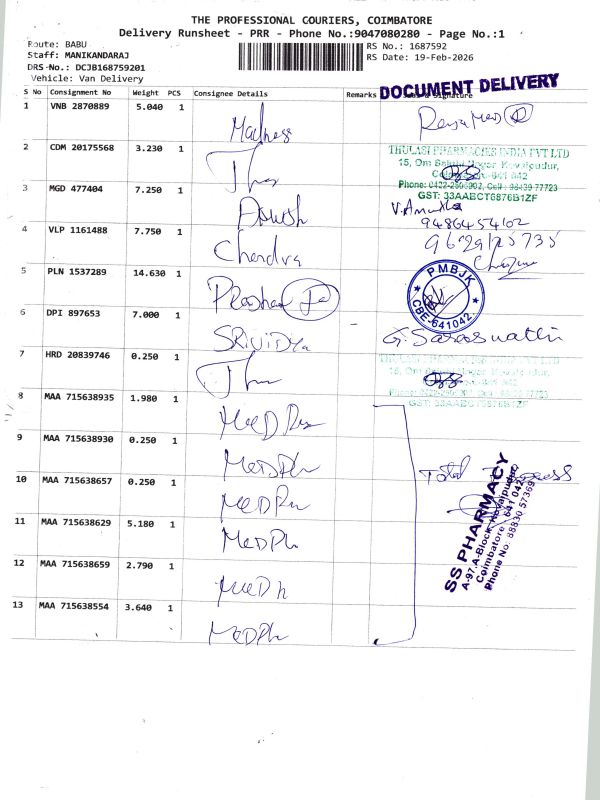 THE PROFESSIONAL COURIERS, COIMBATORE
Delivery Runsheet - PRR - Phone No.:9047080280 - Page No.:1
Route: BABU
Staff: MANIKANDARAJ
DRS-No.: DCJB168759201
Vehicle: Van Delivery
RS No.: 1687592
RS Date: 19-Feb-2026
DOCUMENT DELIVERY
S No Consignment No Weight PCS Consignee Details Remarks Signature
1 VNB 2870889 5.040 1
2 CDM 20175568 3.230 1
THULASI PHARMACIES INDIA PVT LTD
15, Om Sakthi Nagar, Kovaipudur,
Phone: 0422-2606902, Cell: 98439 77723
GST: 33AABCT6876B1ZF
3 MGD 477404 7.250 1
9486454102
4 VLP 1161488 7.750 1 Chandra
5 PLN 1537289 14.630 1
PMBJK
CBE-641042
6 DPI 897653 7.000 1 SRIVIDYA
G. Saraswathi
7 HRD 20839746 0.250 1
THULASI PHARMACIES INDIA PVT LTD
8 MAA 715638935 1.980 1
9 MAA 715638930 0.250 1 MEDPh
10 MAA 715638657 0.250 1
11 MAA 715638629 5.180 1 MEDPh
12 MAA 715638659 2.790 1
13 MAA 715638554 3.640 1 MEDPh
SS PHARMACY
A-97, A-Block, Kovaipudur,
Coimbatore - 641 042
Phone No: 88830 57369